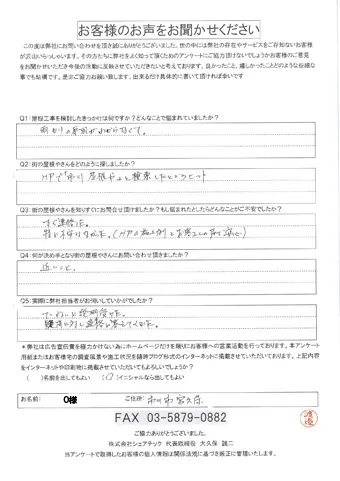 お客様のお声をお聞かせください
この度は弊社にお問い合わせを頂き誠にありがとうございました。世の中には弊社の存在やサービスをご存知ないお客様
が沢山いらっしゃいます。その方たちに弊社をよく知って頂くためのアンケートにご協力頂けないでしょうか?お客様のご意見
をお聞かせいただき今後の活動に反映させていただきたいと考えております。良かったこと、嬉しかったことどのような些細な
事でも結構です。是非ご協力お願い致します。出来るだけ具体的に書いて頂ければ幸いです
Q1:屋根工事を検討したきっかけは何ですか?どんなことで悩まれていましたか?
雨もりの原因がわからなくて。
Q2:街の屋根やさんをどのように探しましたか?
HPで市川 屋根やと検索したところヒット
Q3:街の屋根やさんを知りすぐにお問合せ頂けましたか?もし悩まれたとしたらどんなことがご不安でしたか?
すぐ連絡した。
Q4:何が決め手となり街の屋根やさんにお問い合わせ頂きましたか?
近いこと。
Q5:実際に弊社担当者がお伺いしていかがでしたか?
ていねいに説明頂けた。
質問に対し的確に答えてくれた。
*弊社は広告宣伝費を極力かけない為にホームページだけを頼りにお客様への営業活動を行っております。本アンケート
用紙またはお客様宅の調査風景や施工状況を随時ブログ形式のインターネットに掲載させていただいております。上記内容
をインターネットや印刷物に掲載させていただいてもよろしいでしょうか?
( )名前を出してもよい (○)イニシャルなら出してもよい
お名前: O様 ご住所: 市川市宮久保
FAX 03-5879-0882
ご協力ありがとうございました。
株式会社シェアテック 代表取締役 大久保 誠二
当アンケートで取得したお客様の個人情報は関係法規に基づき厳正に管理いたします。